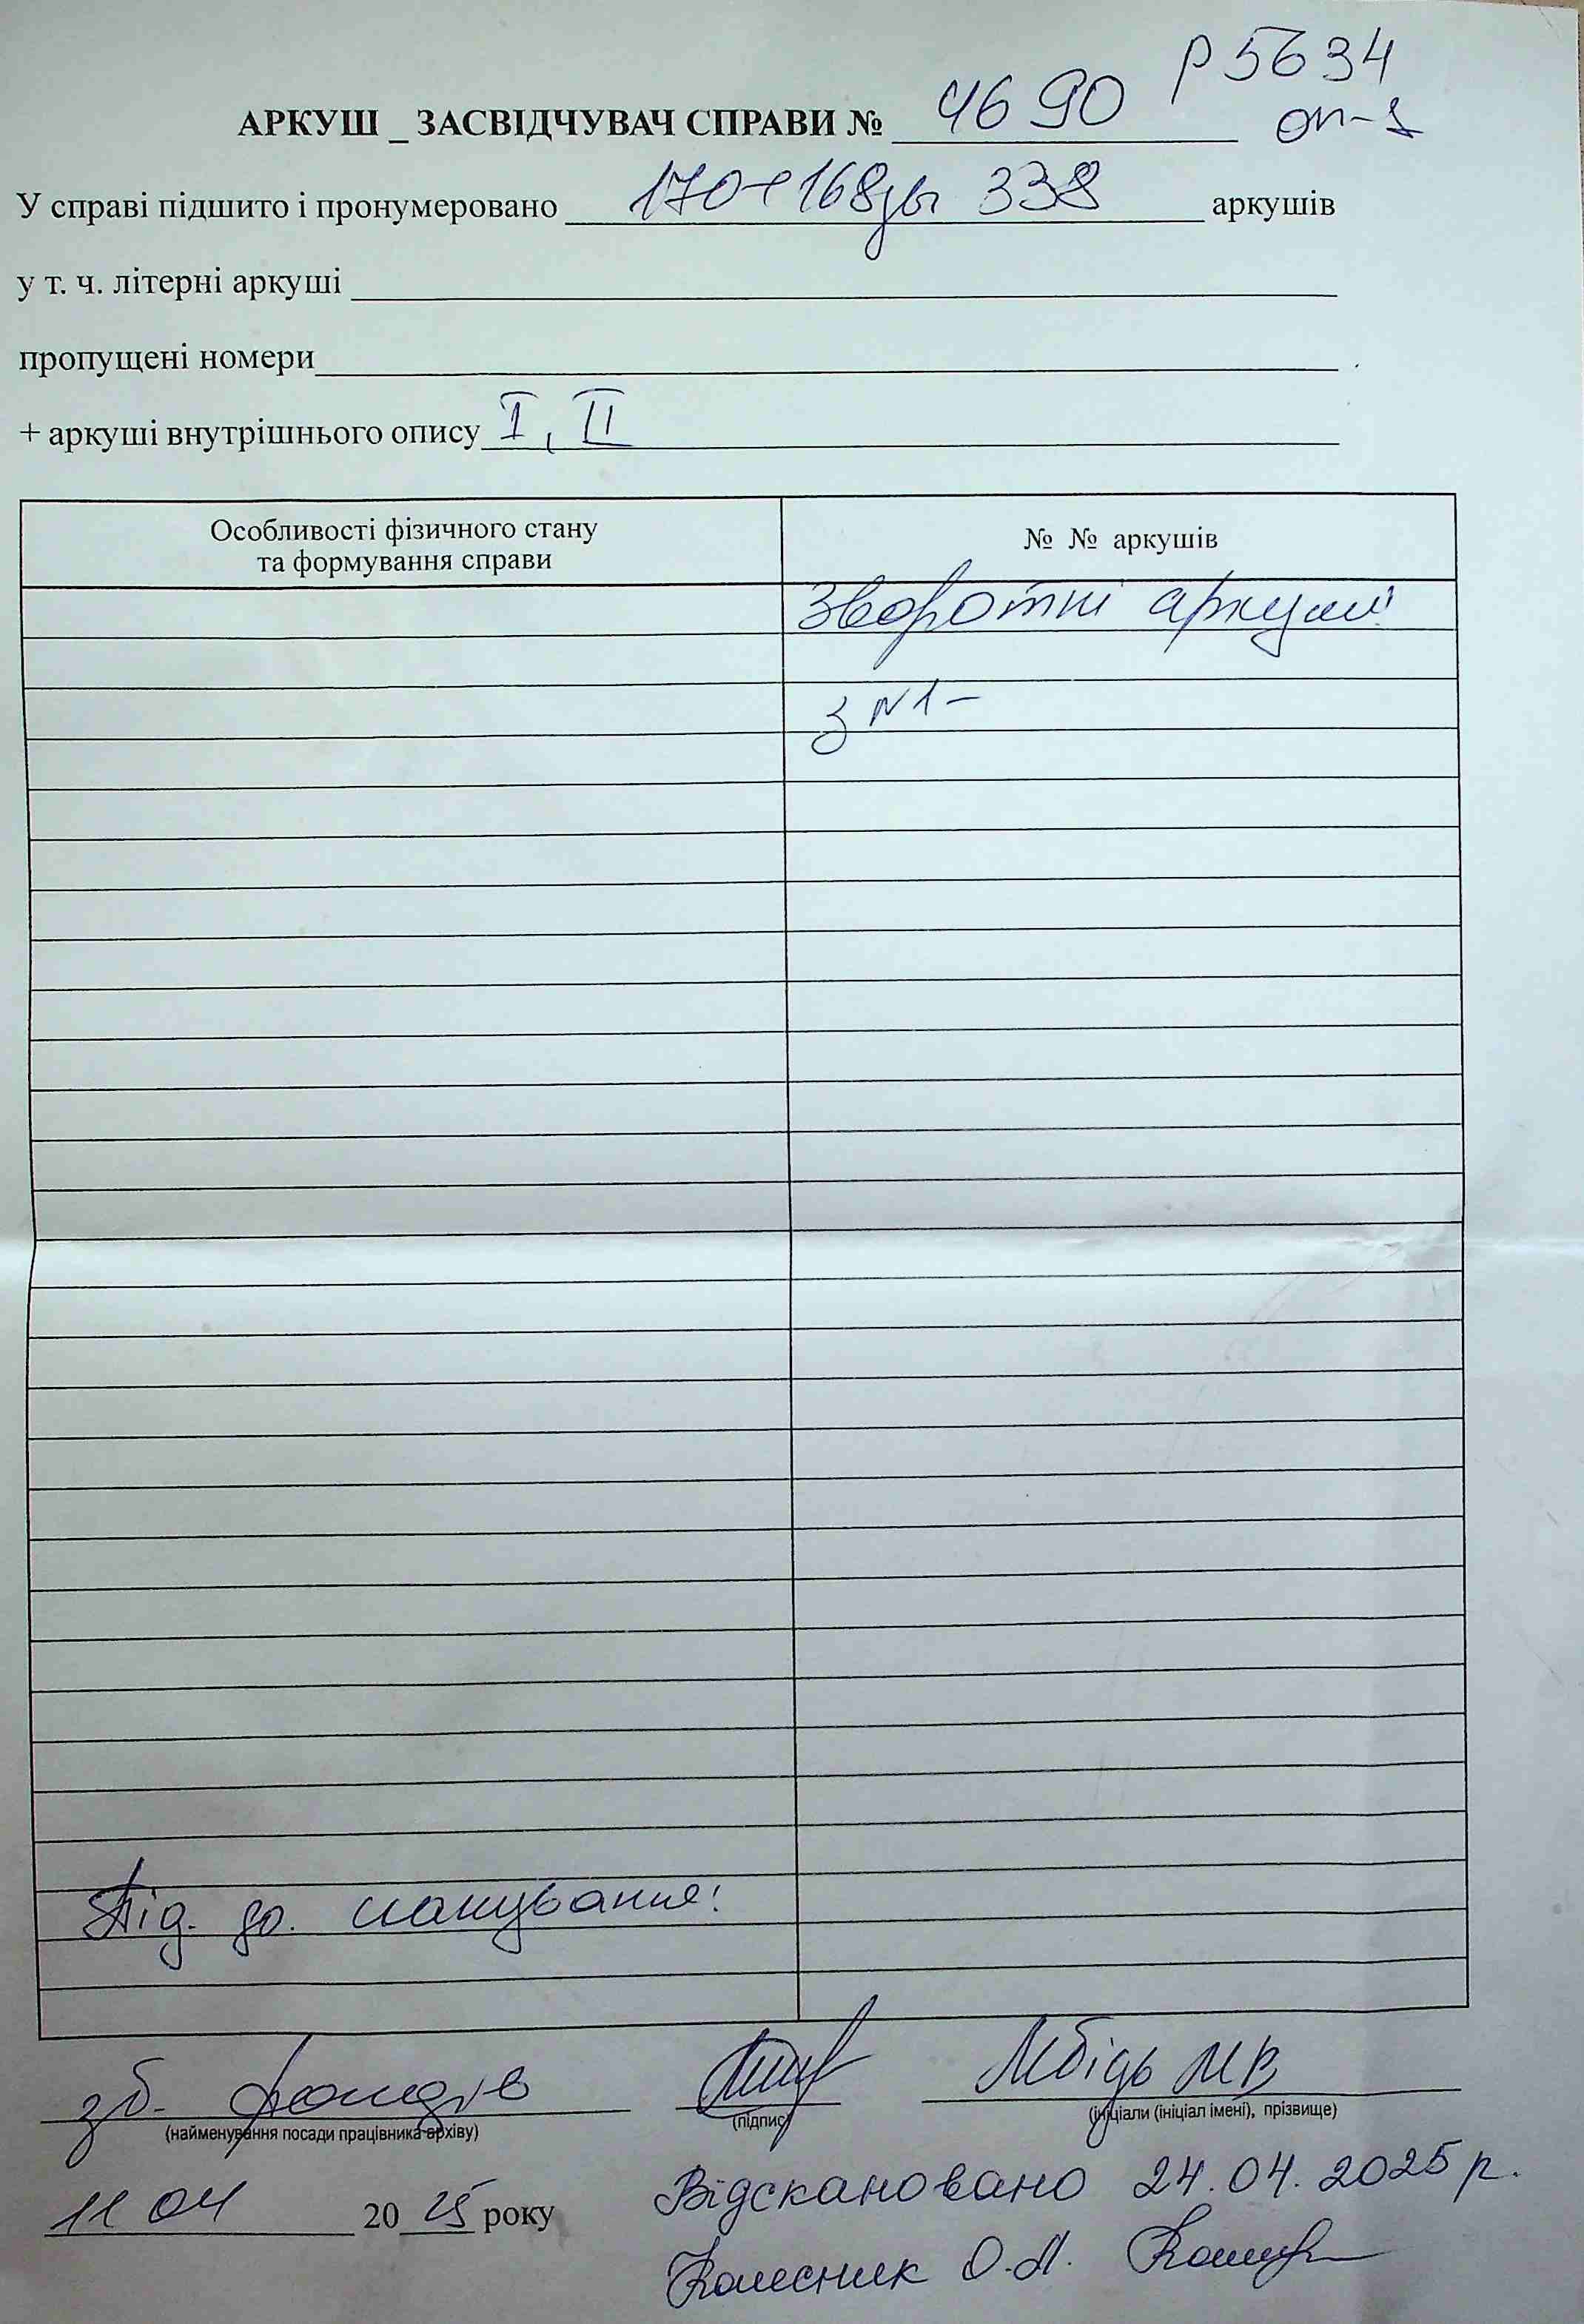 р 5634
АРКУШ _ ЗАСВІДЧУВАЧ СПРАВИ № 4690 оп-1
У справі підшито і пронумеровано 170+168зв 338 аркушів
у т. ч. літерні аркуші
пропущені номери
+ аркуші внутрішнього опису I, II
Особливості фізичного стану та формування справи
№ № аркушів
Зворотні аркуші
з №1-
Під. до. сканування!
зб. фондів Лебідь М В
(найменування посади працівника архіву) (підпис) (ініціали (ініціал імені), прізвище)
11 04 20 25 року
Відскановано 24.04.2025 р.
Колесник О.А.